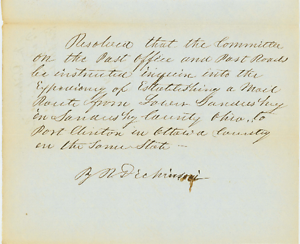 Resolved that the Committee
on the Post Office and Post Roads
be instructed inquire into the
Expediency of Establishing a Mail
Route from Lower Sandusky
in Sandusky County Ohio, to
Port Clinton in Ottawa County
in the Same State —
By R Dickinson